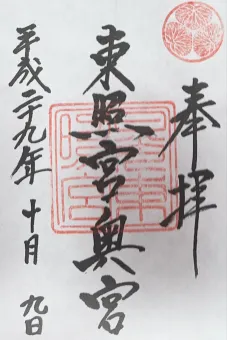 奉拝
東照宮奥宮
平成二十九年十月九日